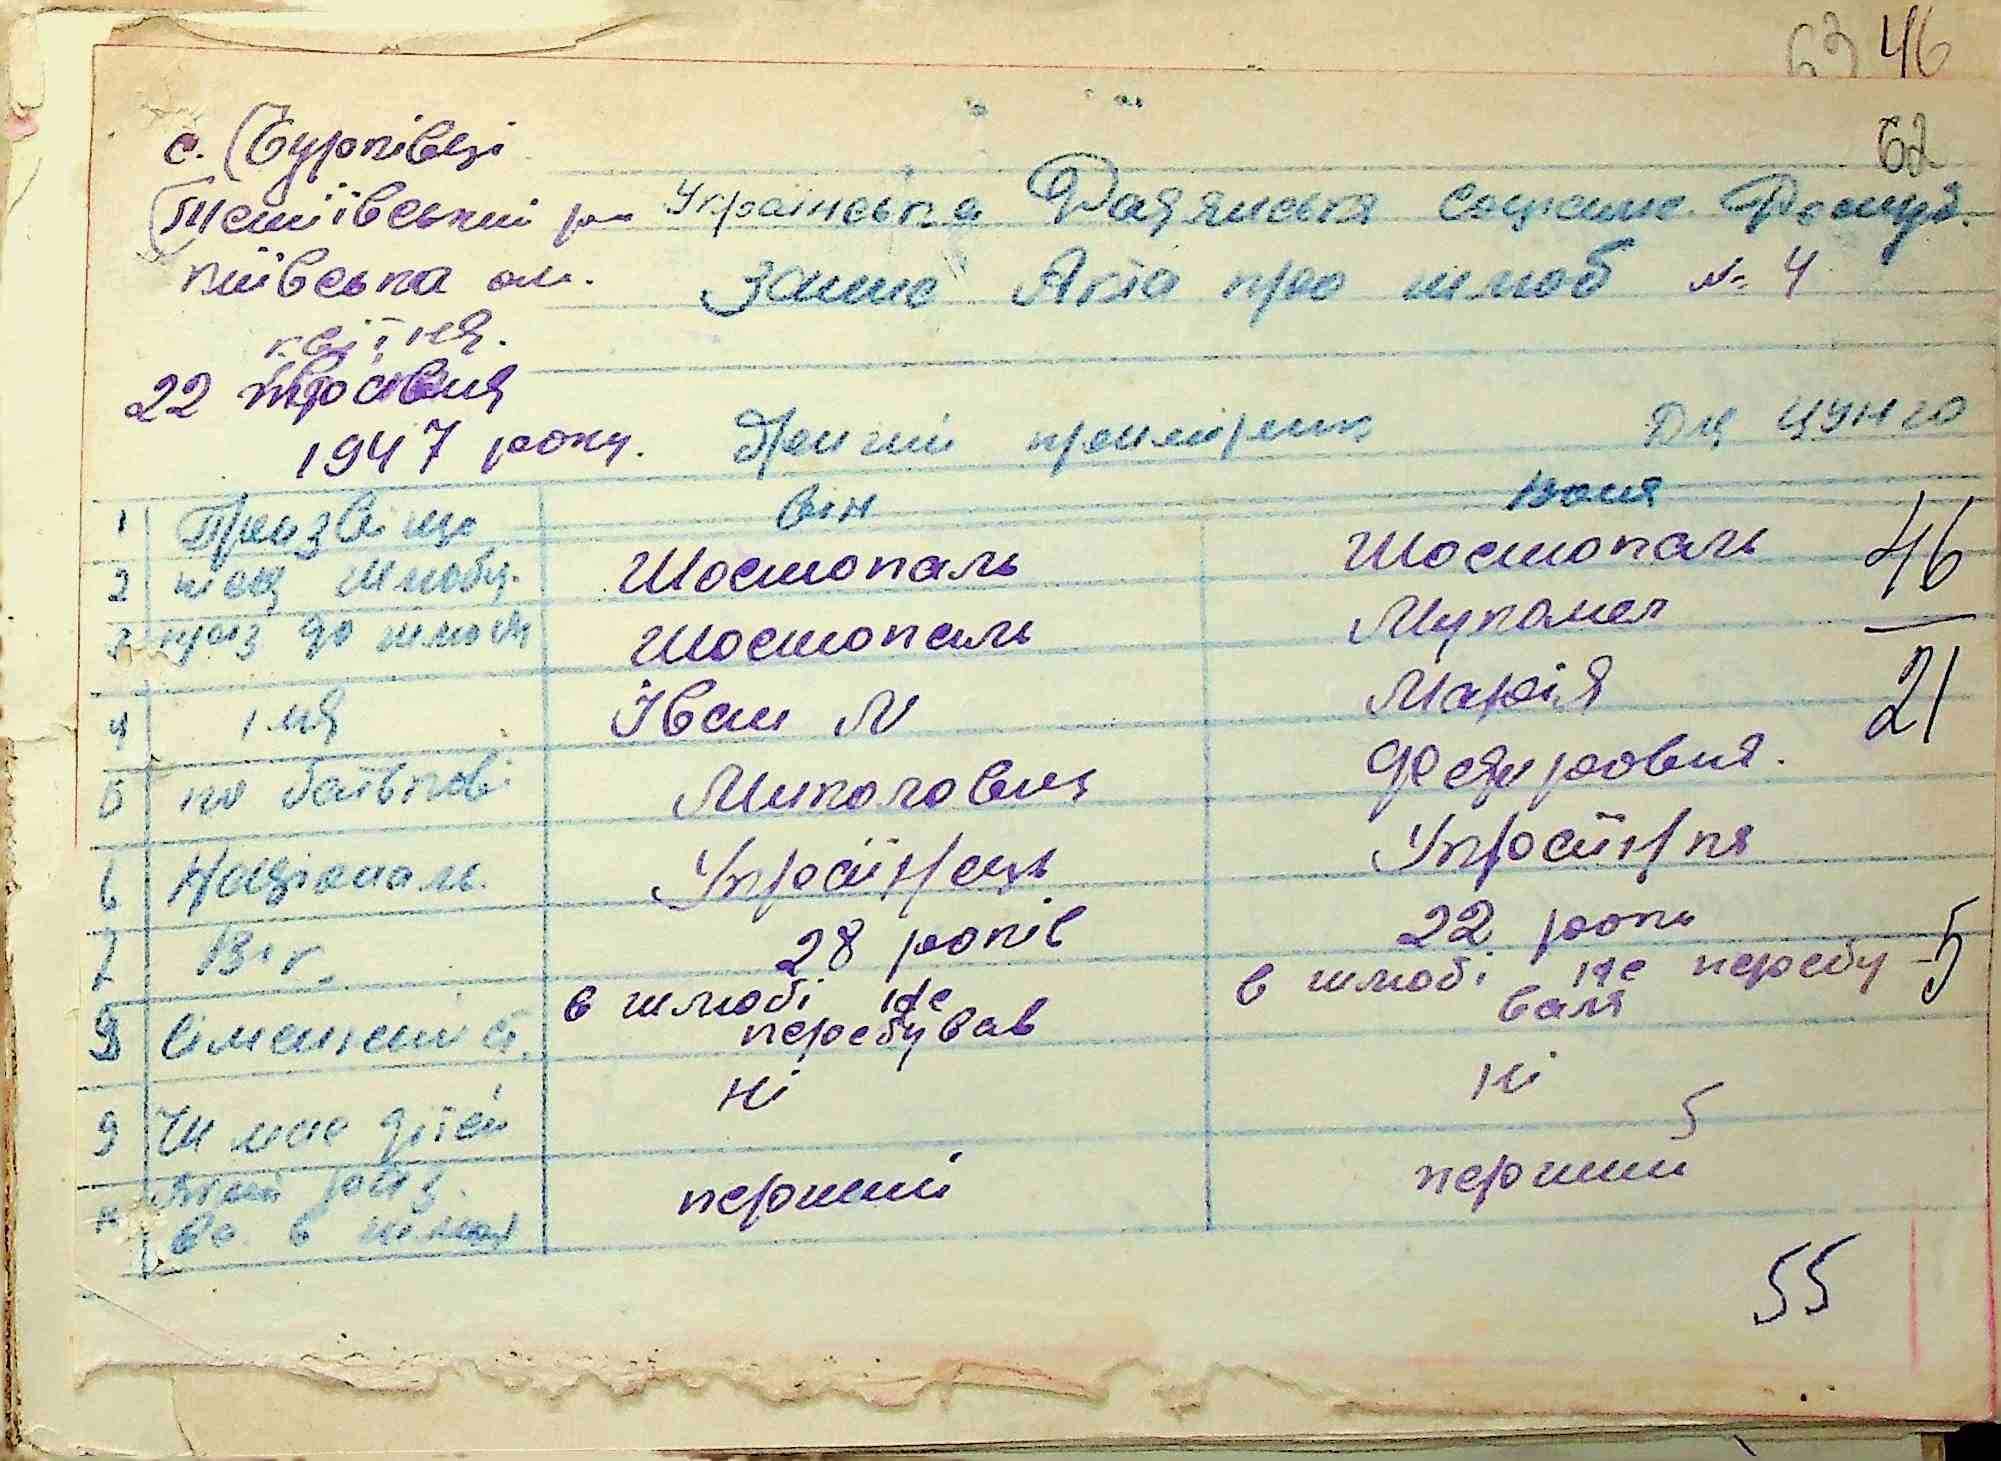 63 46
62
с. Бурківці
Тетіївський р-н
Київська обл.
квітня.
22 травня
1947 року.
Українська Радянська Соціаліс. Респуб.
Запис Акта про шлюб № 4
Другий примірник Для ЦУНГО
1 Прізвіще Він Вона
2 після шлюбу. Шостопаль Шостопаль 46
3 пріз до шлюбу Шостопаль Мукомел
4 імя Іван М Марія 21
5 по батькові Миколович Федировня.
6 Національ. Українець Українка
7 Вік. 28 років 22 роки
8 Сімейний ст. в шлюбі не перебував в шлюбі не перебу
вала 5
9 Чи має дітей Ні Ні
5
Який раз перший перший
в шлюбі
55